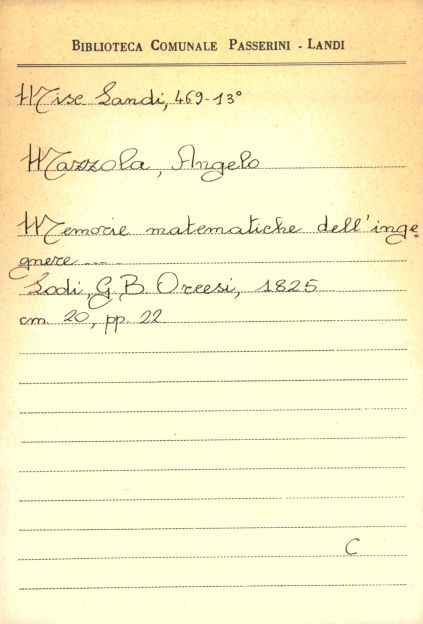 BIBLIOTECA COMUNALE PASSERINI - LANDI
Misc Landi, 469-13°
Mazzola, Angelo
Memorie matematiche dell'inge
gnere ...
Lodi, G.B. Orcesi, 1825
cm 20, pp. 22
C